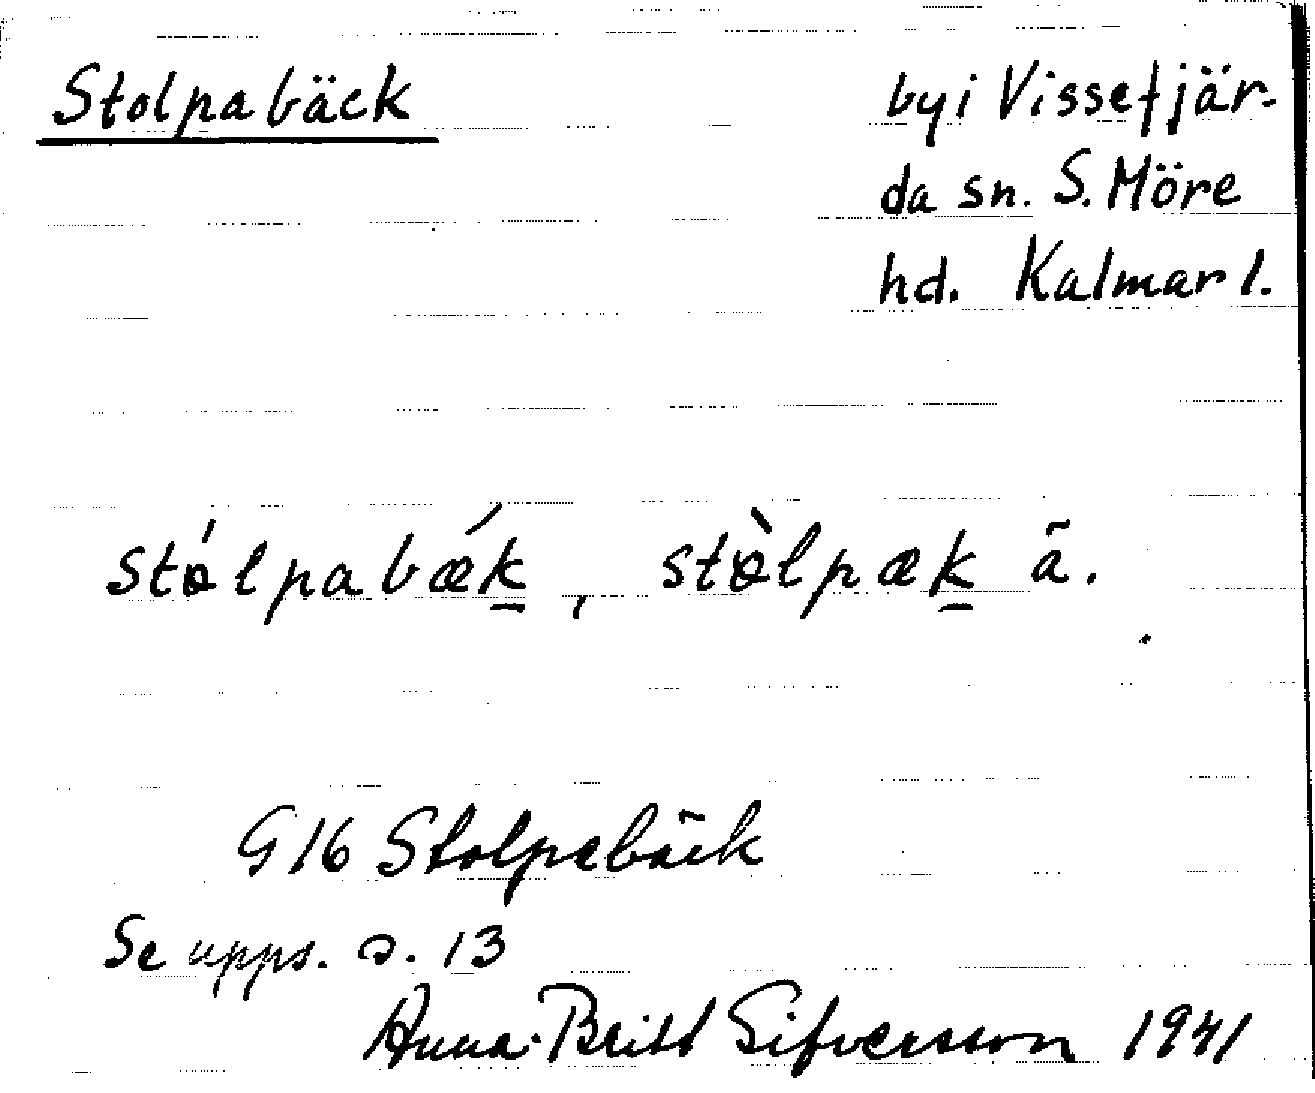 Stolpabäck
by i Vissefjär-
da sn. S. Möre
hd. Kalmar l.
stólpabǽk̲, stòlpæk̲ ã.
G 16 Stolpabäck
Se upps. s. 13
Anna-Britt Sifversson 1941